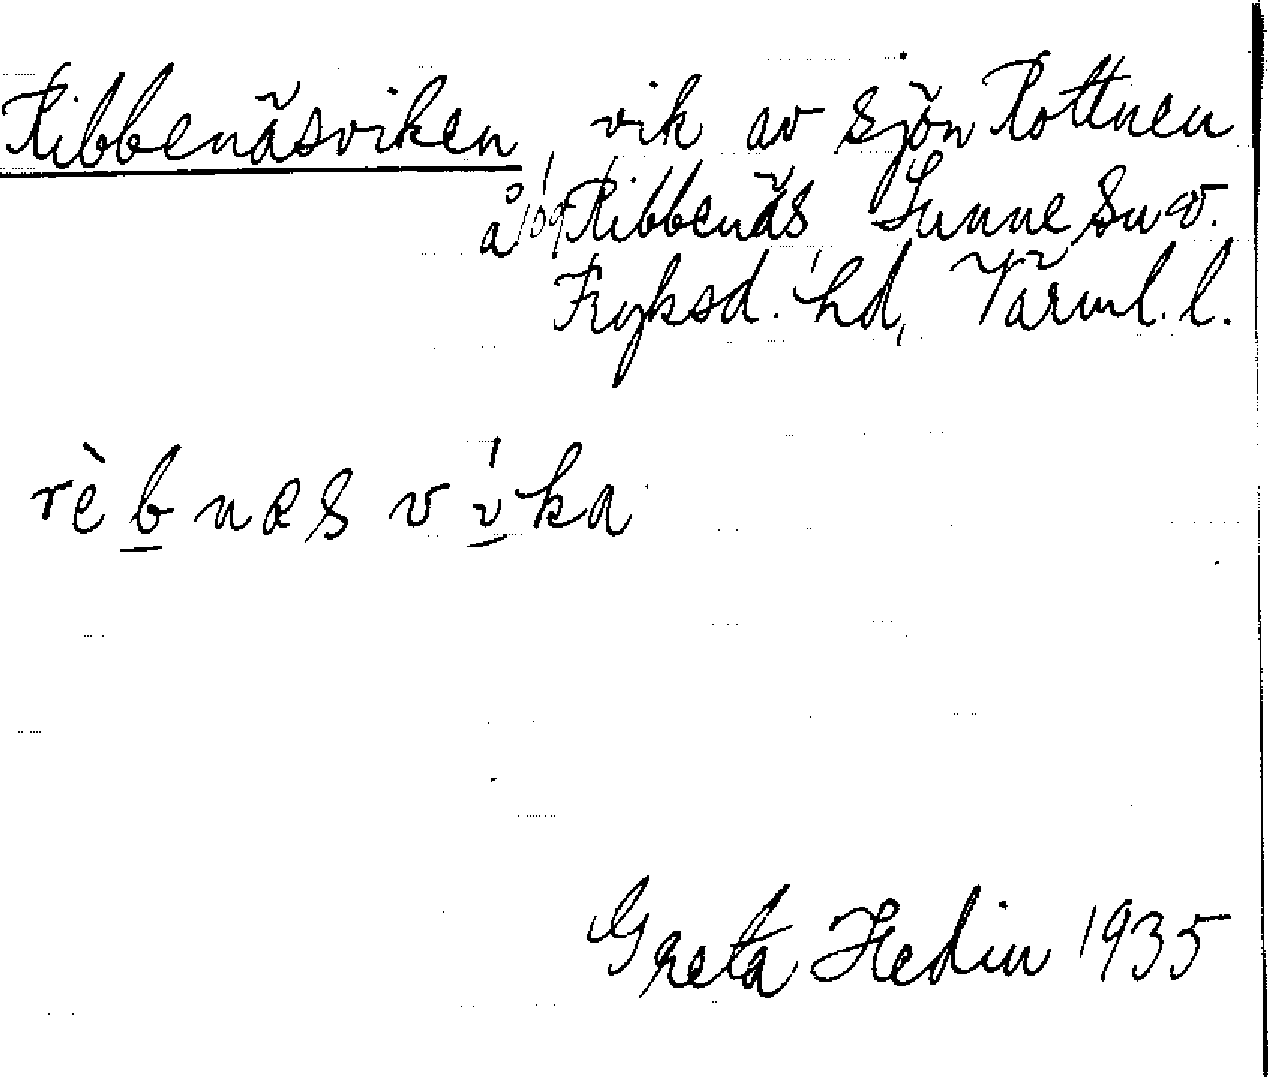 Ribbenäsviken, vik av sjön Rottnen
å 109 Ribbenäs Sunne sn v.
Fryksd. hd, Värml. l.
rèbnæs víka
Greta Hedin 1935